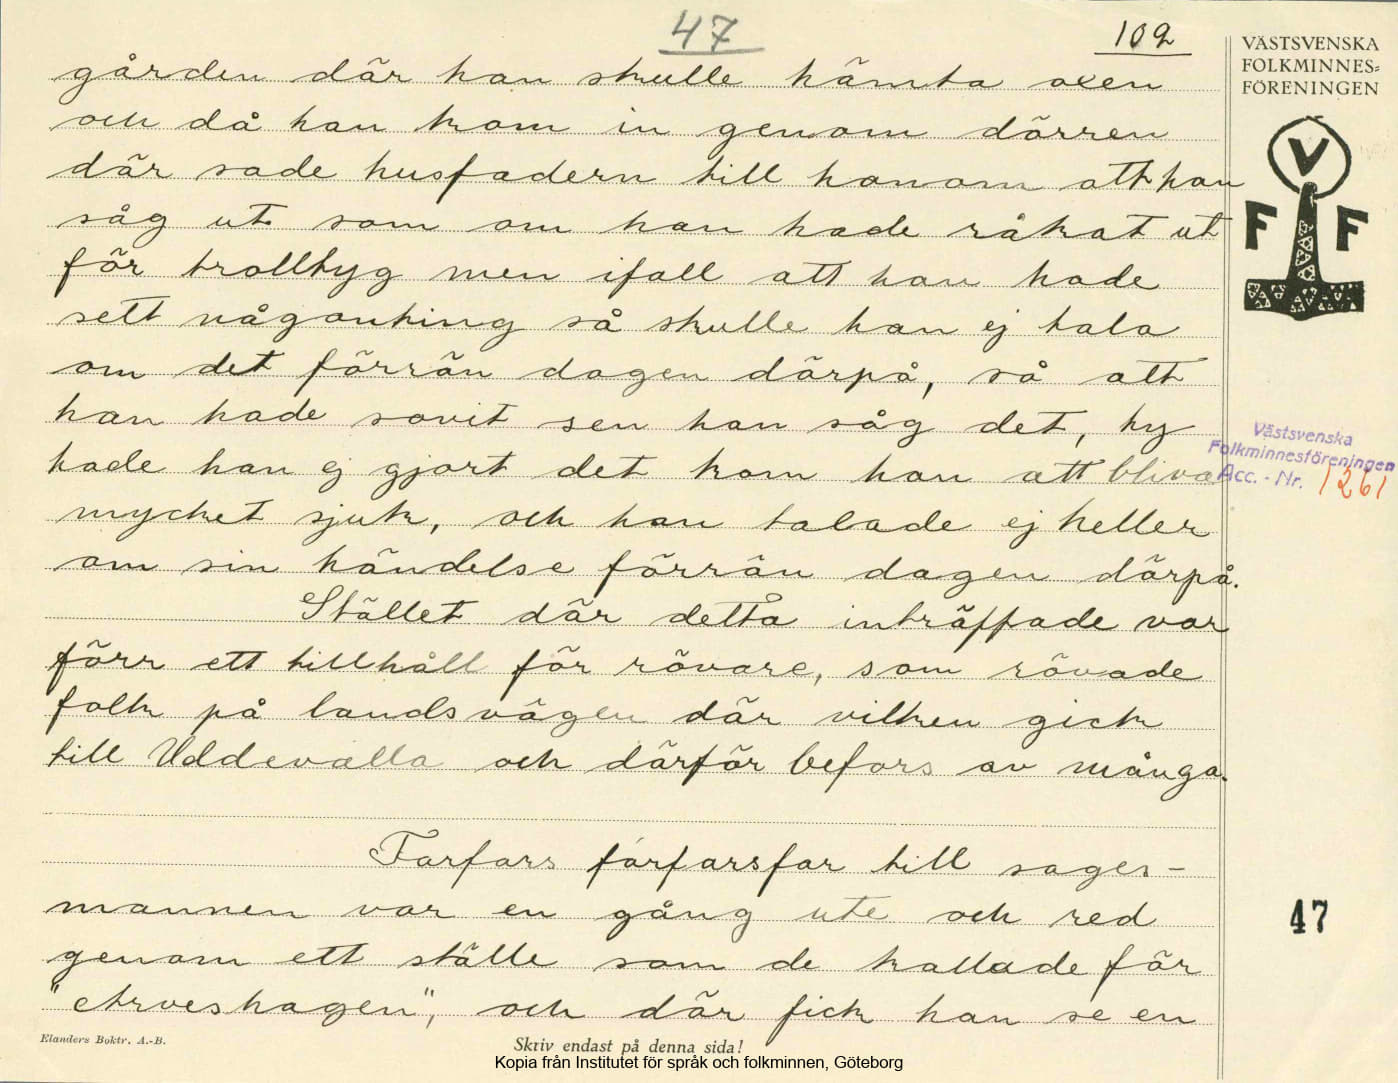 47
102
VÄSTSVENSKA
FOLKMINNES=
FÖRENINGEN
V
F F
gården där han skulle hämta oxen
och då han kom in genom dörren
där sade husfadern till honom att han
såg ut som om han hade råkat ut
för trolltyg men ifall att han hade
sett någonting så skulle han ej tala
om det förrän dagen därpå, så att
han hade sovit sen han såg det, ty
hade han ej gjort det kom han att bliva
mycket sjuk, och han talade ej heller
om sin händelse förrän dagen därpå.
Stället där detta inträffade var
förr ett tillhåll för rövare, som rövade
folk på landsvägen där vilken gick
till Uddevalla och därför befors av många.
Västsvenska
Folkminnesföreningen
Acc. - Nr. 1261
Farfars farfarsfar till sages-
mannen var en gång ute och red
genom ett ställe som de kallade för
och där fick han se en
47
Elanders Boktr. A.-B.
Skriv endast på denna sida!
Kopia från Institutet för språk och folkminnen, Göteborg